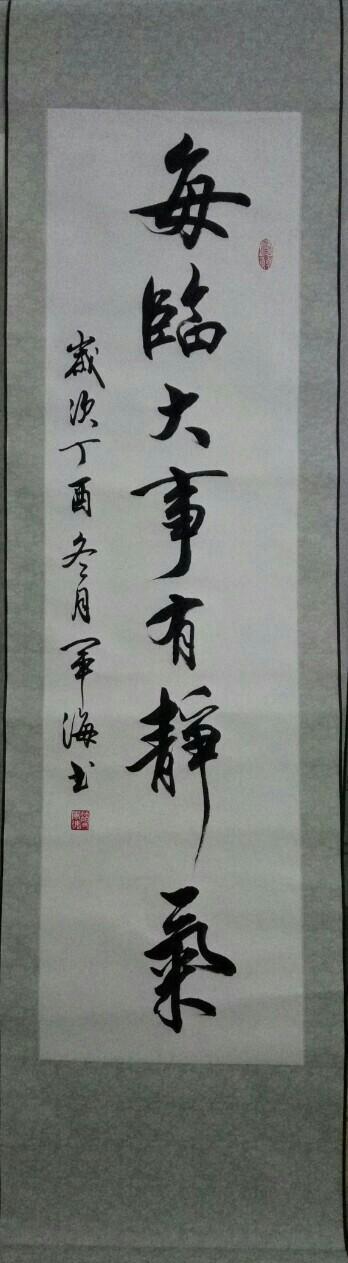 每臨大事有靜氣
歲次丁酉冬月軍海书